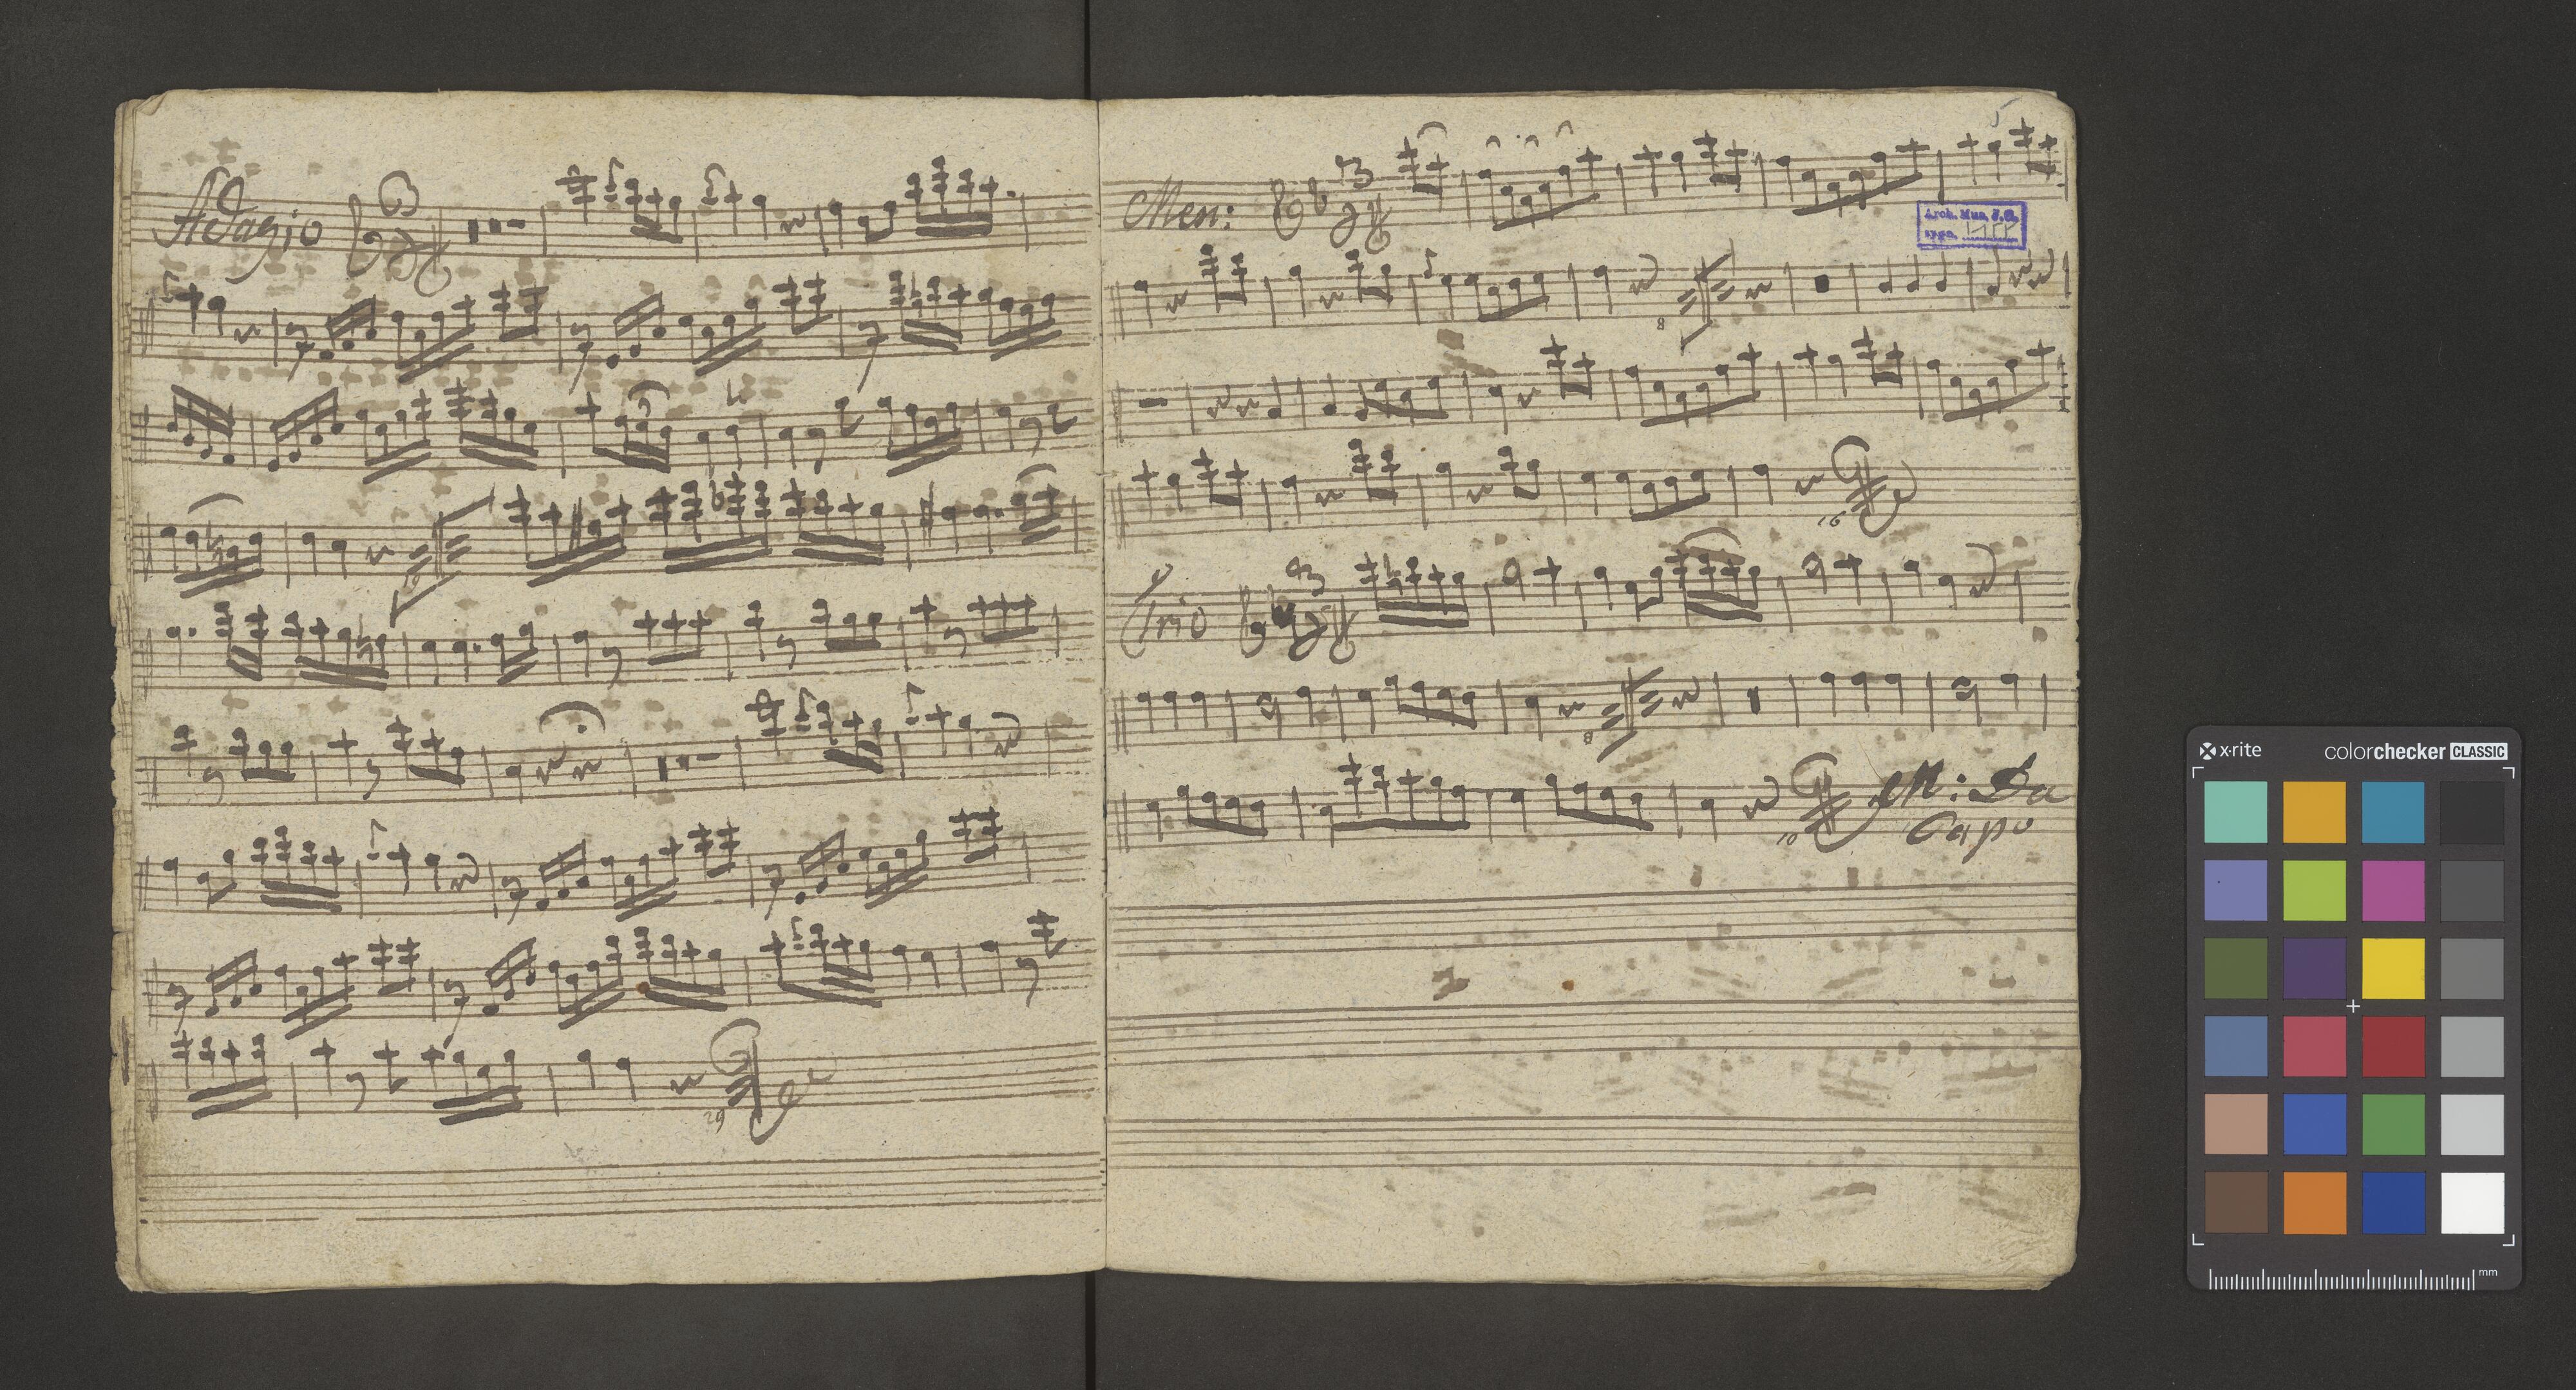 Adagio
29
5
Men:
Arch. Mus. J.G.
8
16
Trio
8
M: Da
10
Capo
x·rite colorchecker CLASSIC
mm